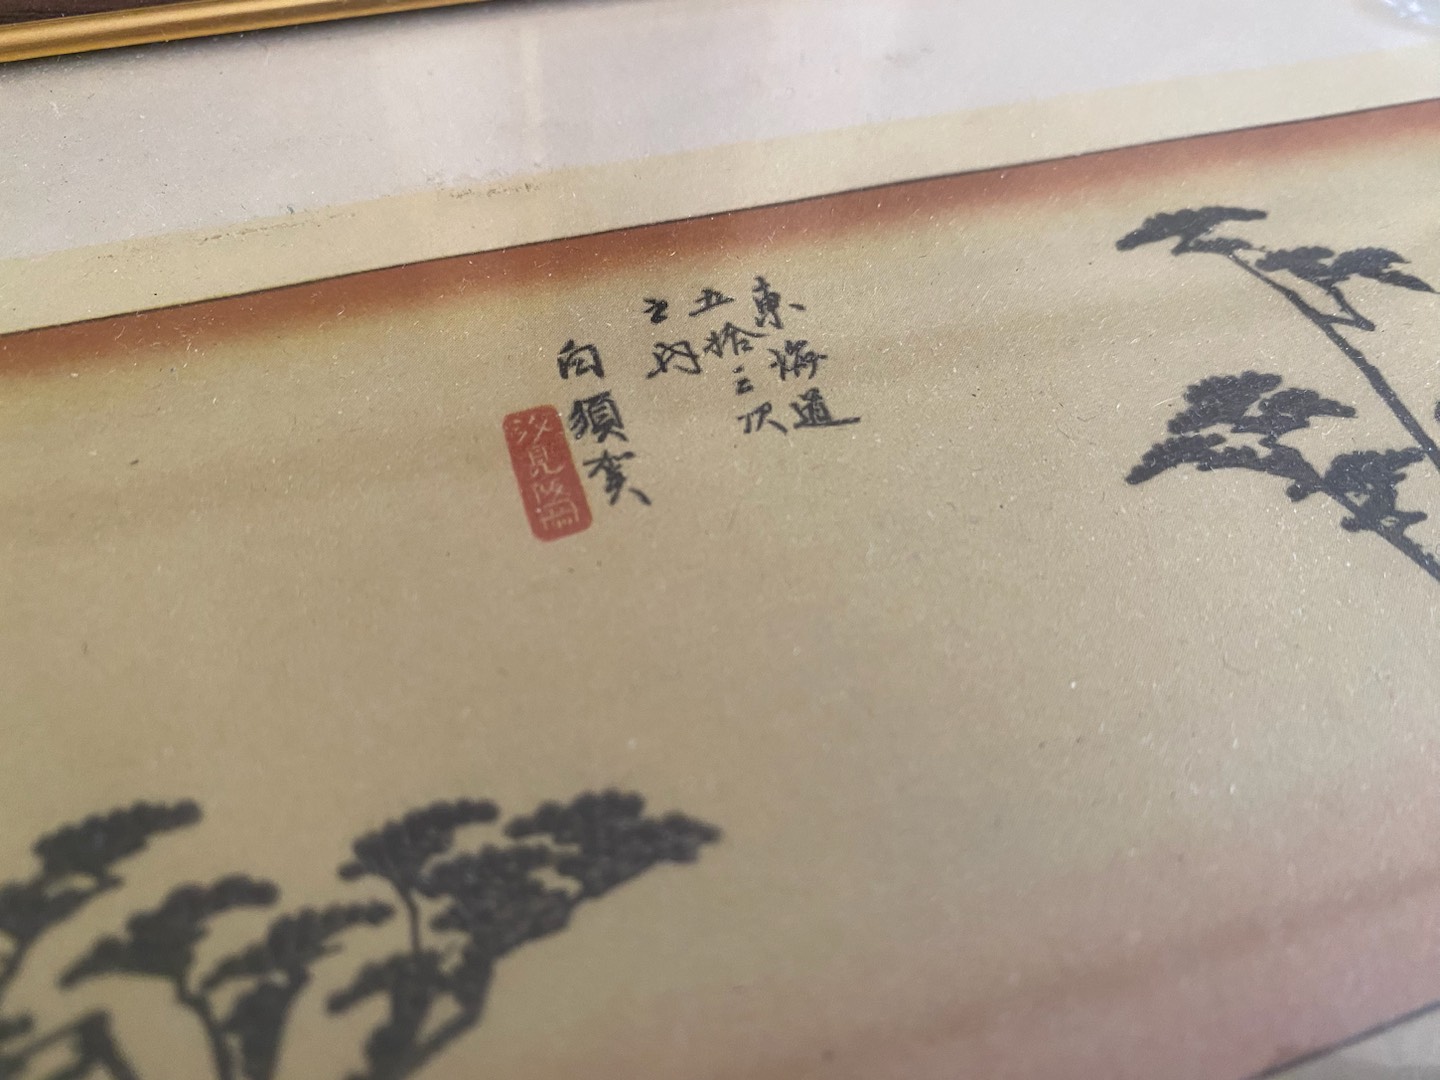 東海道
五拾三次
之内
白須賀
汐見阪圖